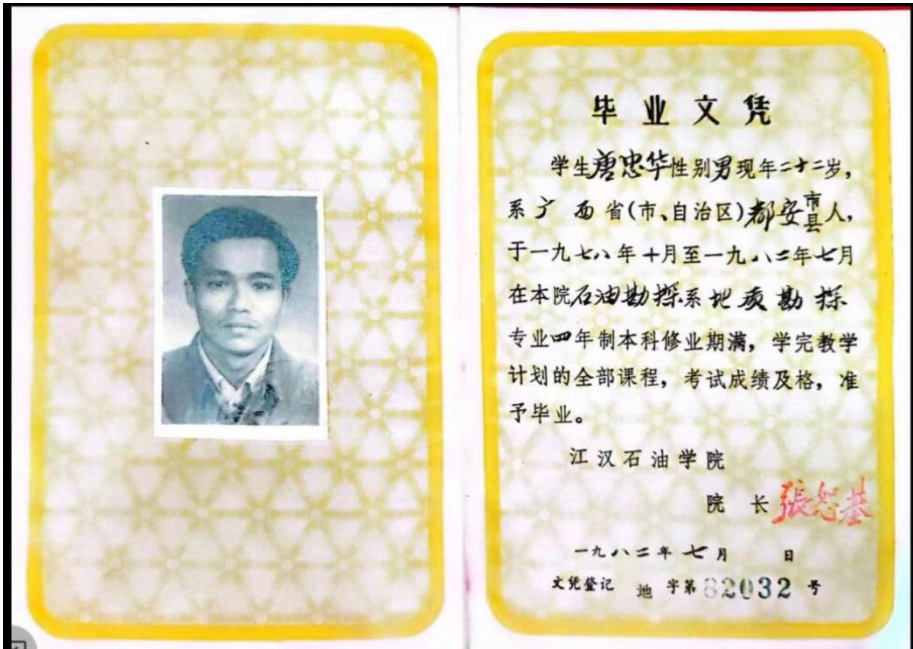 毕业文凭
学生唐忠华性别男现年二十二岁，
系广西省(市、自治区)都安市县人，
于一九七八年十月至一九八二年七月
在本院石油勘探系地质勘探
专业四年制本科修业期满，学完教学
计划的全部课程，考试成绩及格，准
予毕业。
江汉石油学院
院长張恕基
一九八二年七月 日
文凭登记 地 字第82032号